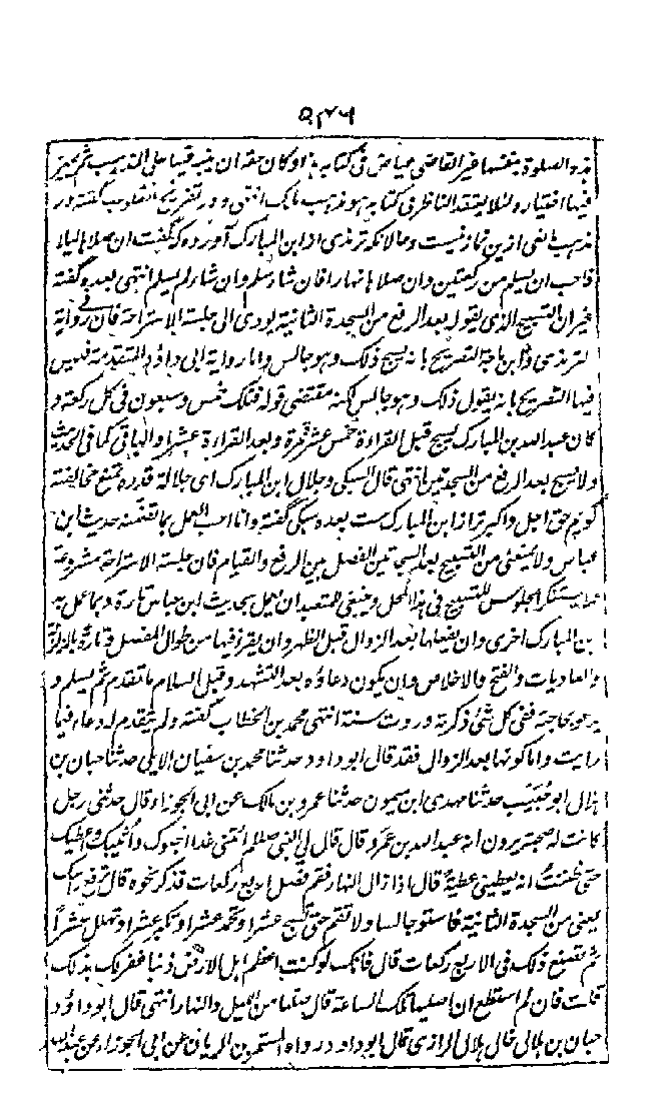 هذه الصلوة بنفسها غير القاضى عياض فى كتابه هذا وكان حقه ان ينبه فيها على المذهب ثم يخبر
فيها اختياره ولئلا يعتقد الناظر فى كتابه هو مذهب مالك انتهى و در تفريح القلوب گفته در
مذهب حنفى ازين نماز نيست وحالانكه ترمذى از ابن المبارك آورده كه گفت ان صلاها ليلا
فاحب ان يسلم من ركعتين وان صلاها نهارا فان شاء سلم وان شاء لم يسلم انتهى بعده گفته
غير ان التسبيح الذى يقوله بعد الرفع من السجدة الثانية يودى الى جلسة الاستراحة فان فى رواية
الترمذى وابن ماجة التصريح بانه يسبح ذلك وهو جالس واما رواية ابى داؤد المتقدمة فليس
فيها التصريح بانه يقول ذلك وهو جالس لكنه مقتضى قوله فتلك خمس وسبعون فى كل ركعة و
كان عبد الله بن المبارك يسبح قبل القراءة خمس عشرة مرة وبعد القراءة عشرا والباقى كما فى الحديث
ولا يسبح بعد الرفع من السجدتين انتهى قال السبكى وجلال ابن المبارك اى جلالة قدره تمنع مخالفته
گويم حق اجل واكبر تر از ابن المبارك ست بعده سبكى گفته وانا احب العمل بما تضمنه حديث ابن
عباس ولا يمنعنى من التسبيح بعد السجدتين الفصل بين الرفع والقيام فان جلسة الاستراحة مشروعة
فلا يستنكر الجلوس للتسبيح فى هذا المحل وينبغى للمتعبد ان يعمل بحديث ابن عباس تارة وبما عمل به
ابن المبارك اخرى وان يفعلها بعد الزوال قبل الظهر وان يقرء فيها من طوال المفصل وتارة بالزلزلة
والعاديات والفتح والاخلاص وان يكون دعاؤه بعد التشهد وقبل السلام ما تقدم ثم يسلم و
يدعو بحاجته ففى كل شئ ذكرته وردت سنة انتهى محمد بن الخطاب گفته ولم يتقدم له دعاء فيما
رايت واما كونها بعد الزوال فقد قال ابو داود حدثنا محمد بن سفيان الابلى حدثنا حبان بن
هلال ابو حبيب حدثنا مهدى ابن ميمون حدثنا عمرو بن مالك عن ابى الجوزاء قال حدثنى رجل
كانت له صحبة يرون انه عبد الله بن عمرو قال قال لى النبى صلعم ائتنى غدا احبوك واثيبك واعطيك
حتى ظننت انه يعطينى عطية قال اذا زال النهار فقم فصل اربع ركعات فذكر نحوه قال ترفع راسك
يعنى من السجدة الثانية فاستو جالسا ولا تقم حتى تسبح عشرا وتحمد عشرا وتكبر عشرا وتهلل عشرا
ثم تصنع ذلك فى الاربع ركعات قال فانك لو كنت اعظم اهل الارض ذنبا غفر لك بذلك
قلت فان لم استطع ان اصليها تلك الساعة قال صلها من الليل والنهار انتهى قال ابو داؤد
حبان بن هلال خال هلال الرازى قال ابو داود رواه المستمر بن الريان عن ابى الجوزاء عن عبد الله